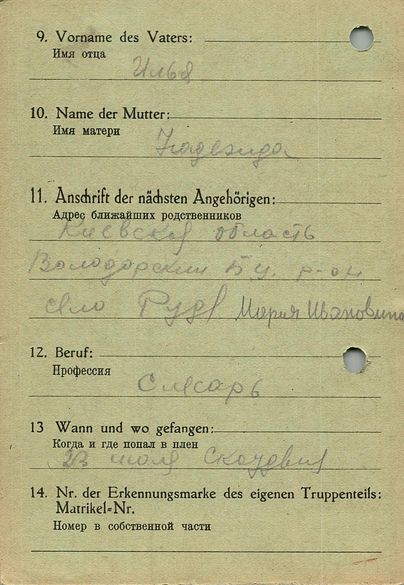 9. Vorname des Vaters:
Имя отца
Илья
10. Name der Mutter:
Имя матери
Надежда
11. Anschrift der nächsten Angehörigen:
Адрес ближайших родственников
Киевская область
Володарский р-он
село Руда Мария Ивановна
12. Beruf:
Профессия
Слесарь
13 Wann und wo gefangen:
Когда и где попал в плен
23 июля
14. Nr. der Erkennungsmarke des eigenen Truppenteils:
Matrikel=Nr.
Номер в собственной части